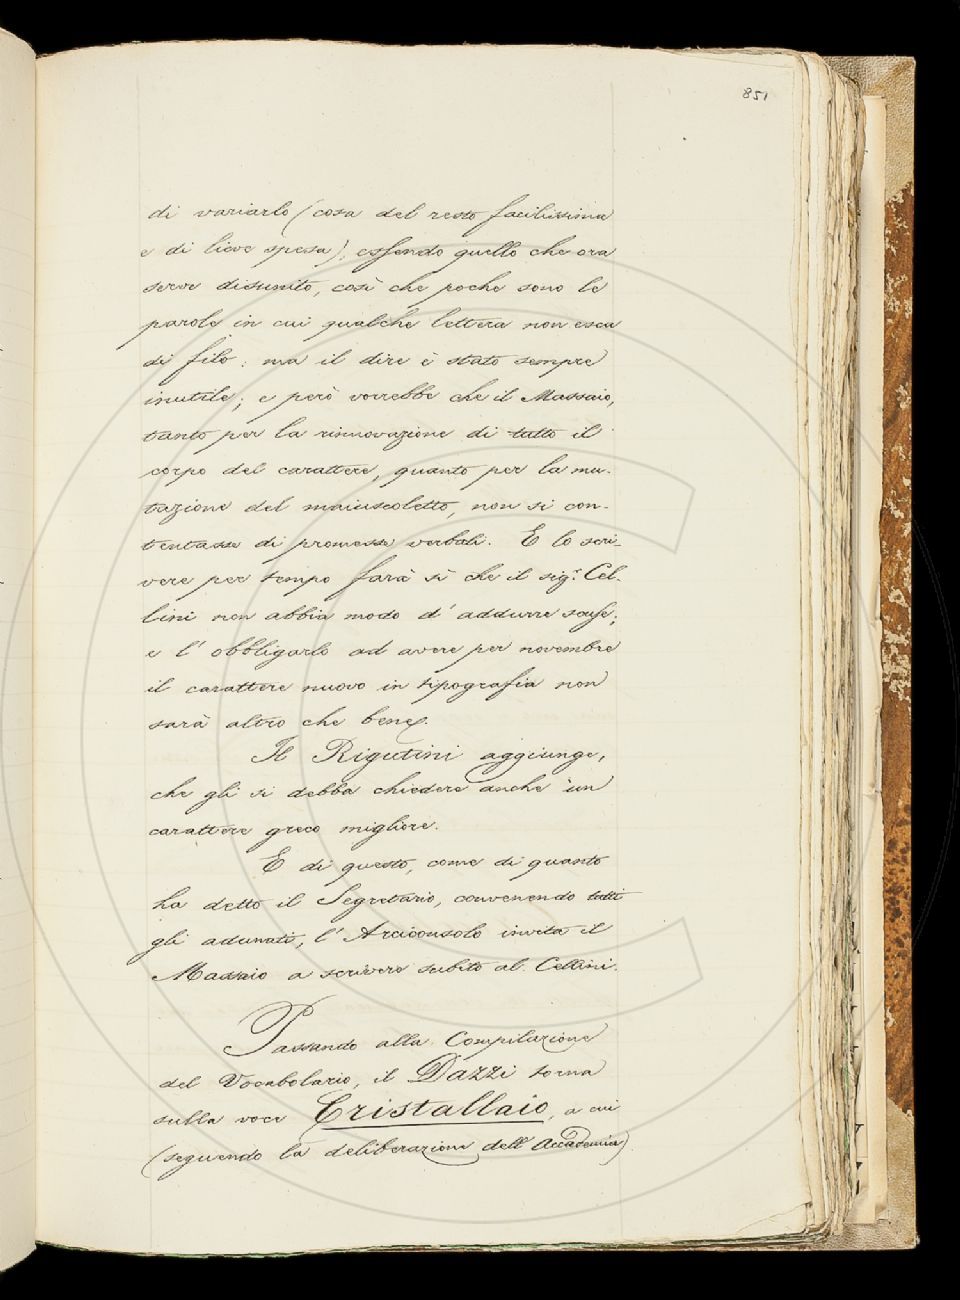 851
di variarlo (cosa del resto facilissima
e di lieve spesa); essendo quello che ora
serve disunito, così che poche sono le
parole in cui qualche lettera non esca
di filo: ma il dire è stato sempre
inutile; e però vorrebbe che il Massaio,
tanto per la rinnovazione di tutto il
corpo del carattere, quanto per la mu-
tazione del maiuscoletto, non si con-
tentasse di promesse verbali. E lo scri-
vere per tempo farà sì che il sig.r Cel-
lini non abbia modo d'addurre scuse;
e l'obbligarlo ad avere per novembre
il carattere nuovo in tipografia non
sarà altro che bene.
Il Rigutini aggiunge,
che gli si debba chiedere anche un
carattere greco migliore.
E di questo, come di quanto
ha detto il Segretario, convenendo tutti
gli adunati, l'Arciconsolo invita il
Massaio a scrivere subito al Cellini.
Passando alla Compilazione
del Vocabolario, il Dazzi torna
sulla voce Cristallaio, a cui
(seguendo la deliberazione dell'Accademia)